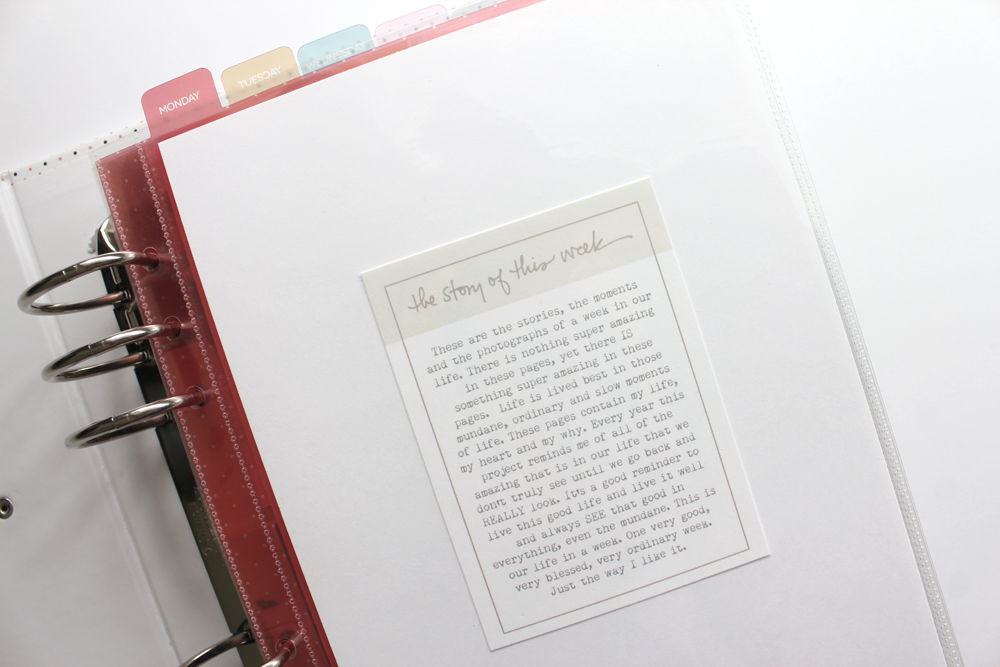 MONDAY
TUESDAY
WEDNESDAY
the story of this week
These are the stories, the moments
and the photographs of a week in our
life. There is nothing super amazing
in these pages, yet there IS
something super amazing in these
pages. Life is lived best in those
mundane, ordinary and slow moments
of life. These pages contain my life,
my heart and my why. Every year this
project reminds me of all of the
amazing that is in our life that we
don't truly see until we go back and
REALLY look. It's a good reminder to
live this good life and live it well
and always SEE that good in
everything, even the mundane. This is
our life in a week. One very good,
very blessed, very ordinary week.
Just the way I like it.